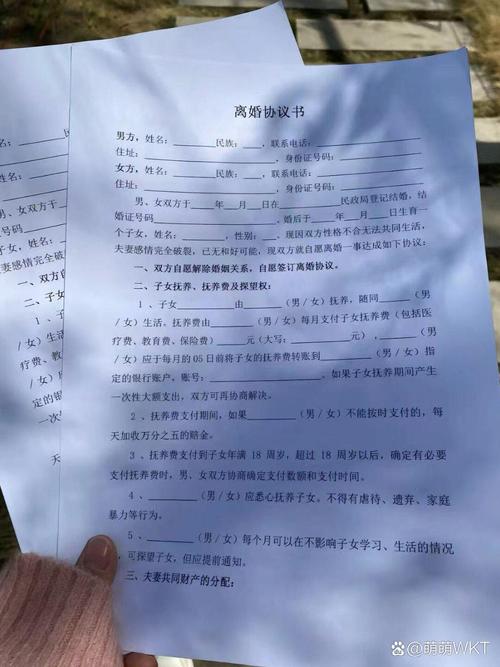 离婚协议书
男方，姓名：________民族：___，联系电话：____________
住址：________________，身份证号码：____________
女方，姓名：________民族：___，联系电话：____________
住址：________________，身份证号码：____________
男、女双方于____年__月__日在________民政局登记结婚，结
婚证号码____________，婚后于____年__月__日生育一
个子女，姓名________，性别：__、现因双方性格不合无法共同生活，
夫妻感情完全破裂，已无和好可能，现双方就自愿离婚一事达成如下协议：
一、双方自愿解除婚姻关系，自愿签订离婚协议。
二、子女抚养、抚养费及探望权：
1、子女________由________（男/女）抚养，随同________（男
/女）生活。抚养费由________（男/女）每月支付子女抚养费（包括医
疗费、教育费、保险费）______元（大写：__________元），________（男
/女）应于每月的05日前将子女的抚养费转账到________（男/女）指
定的银行账户，账号：____________。如果子女抚养期间产生
一次性大额支出，双方可再协商解决。
2、抚养费支付期间，如果________（男/女）不能按时支付的，每
天加收万分之五的赔金。
3、抚养费支付到子女年满18周岁，超过18周岁以后，确定有必要
支付抚养费时，男、女双方协商确定支付数额和支付时间。
4、________（男/女）应悉心抚养子女。不得有虐待、遗弃、家庭
暴力等行为。
5、________（男/女）每个月可以在不影响子女学习、生活的情况
，可探望子女，但应提前通知。
三、夫妻共同财产的分配：
姓名：
住址：
姓名：
住址：
男、女双方于
婚证号码
个子女，姓名
夫妻感情完全
一、双方
二、子女
1、子
/女）生活
疗费、教育
/女）应
定的银行
一次性
天
百家号/萌萌WKT